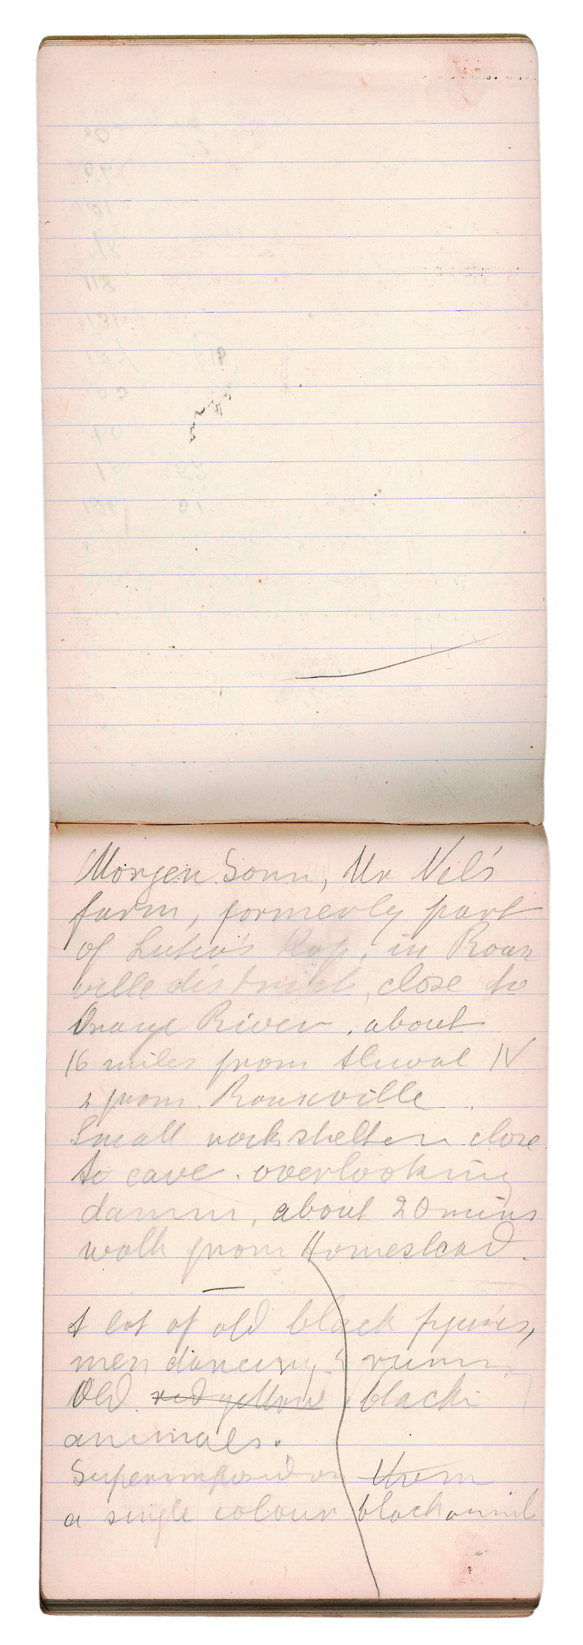 Morgen Sonn, Mr Nel's
farm, formerly part
of Kop, in Roux
ville district, close to
Orange River, about
16 miles from Aliwal N
& from Rouxville.
Small rock shelter close
to cave. overlooking
damm, about 20 mins
walk from Homestead.
A lot of old black figures,
men dancing & runn.
Old red yellow black
animals.
Superimposed on them
a single colour black animl